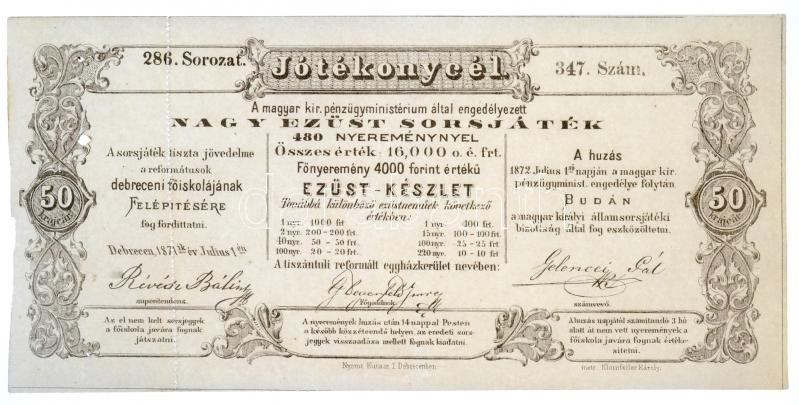 286. Sorozat.
Jótékonycél
347. Szám.
A magyar kir. pénzügyministérium által engedélyezett
NAGY EZÜST SORSJÁTÉK
480 NYEREMÉNYNYEL
Összes érték: 16,000 o. é. frt.
Főnyeremény 4000 forint értékű
EZÜST-KÉSZLET
Továbbá különböző ezüstneműek következő
értékben:
1 nyer. 1000 frt
2 nyr. 200-200 frt.
40 nyr. 50-50 frt.
100 nyr. 20-20 frt.
1 nyr. 400 frt.
15 nyr. 100-100 frt
100 nyr. 25-25 frt
220 nyr. 10-10 frt
A tiszántuli reformált egyházkerület nevében:
A sorsjáték tiszta jövedelme
a reformátusok
debreczeni főiskolájának
FELÉPITÉSÉRE
fog fordittatni.
Debreczen, 1871ik év Julius 1én
Révész Bálint
superitendens.
Főgondnok.
A huzás
1872 Julius 1ső napján a magyar kir.
pénzügyminist. engedélye folytán
BUDÁN
a magyar királyi államsorsjátéki
bizottság által fog eszközöltetni.
Gelenczei Pál
számvevő.
50
krajczár
50
krajczár
Az el nem kelt sorsjegyek
a főiskola javára fognak
játszatni.
A nyeremények huzás után 14 nappal Pesten
a később közzéteendő helyen, az eredeti sors-
jegyek visszaadása mellett fognak kiadatni.
A huzás napjától számitandó 3 hó
alatt át nem vett nyeremények a
főiskola javára fognak értéke-
sittetni.
Nyomt. Kutasi I. Debreczenben
metz. Klomfeller Károly.